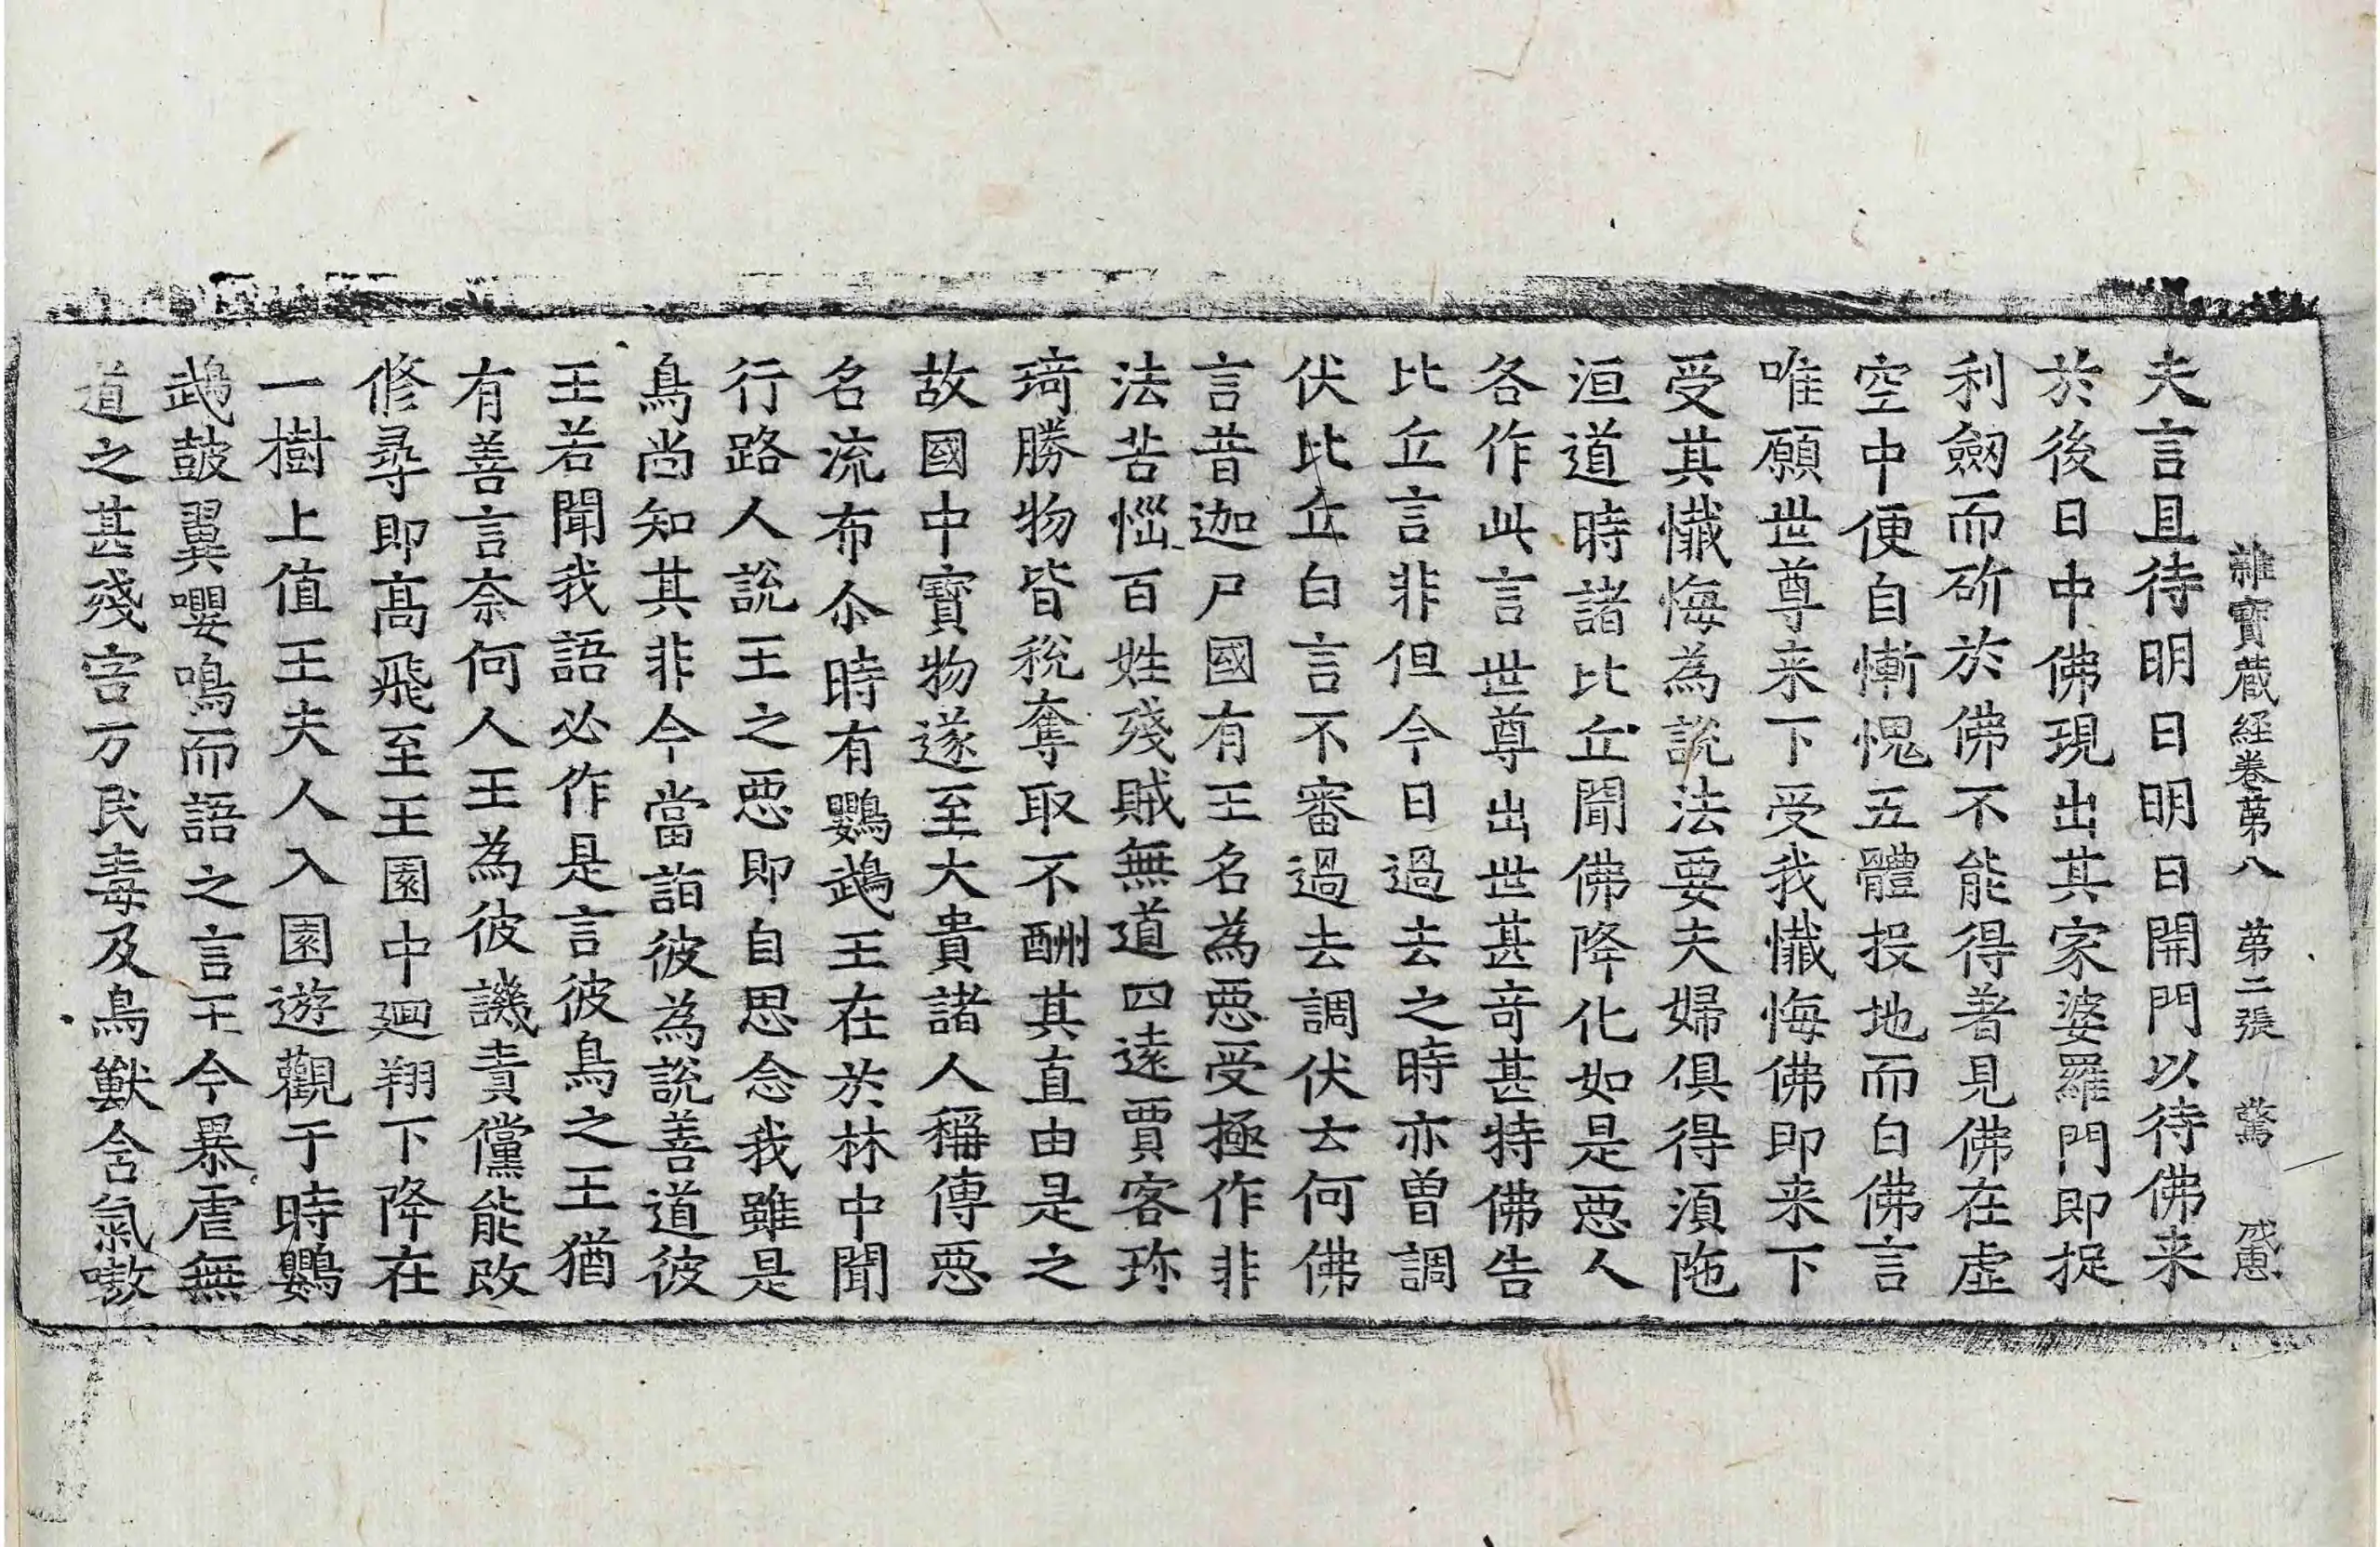 雜寶藏経卷第八　第二張　驚　戒惠
夫言且待明日明日開門以待佛来
於後日中佛現出其家婆羅門即捉
利劔而斫於佛不能得著見佛在虛
空中便自慚愧五體投地而白佛言
唯願世尊来下受我懺悔佛即来下
受其懺悔為說法要夫婦俱得湏陁
洹道時諸比丘聞佛降化如是悪人
各作此言世尊出世甚竒甚特佛告
比丘言非但今日過去之時亦曽調
伏比丘白言不審過去調伏云何佛
言昔迦尸國有王名為悪受極作非
法苦惱百姓殘賊無道四遠賈客珎
琦勝物皆稅奪取不酬其直由是之
故國中寶物遂至大貴諸人稱傳悪
名流布尒時有鸚鵡王在於林中聞
行路人說王之悪即自思念我雖是
鳥尚知其非今當詣彼為說善道彼
王若聞我語必作是言彼鳥之王猶
有善言奈何人王為彼譏責儻能改
修尋即髙飛至王園中廻翔下降在
一樹上值王夫人入園遊觀于時鸚
鵡鼓翼嚶鳴而語之言王今暴虐無
道之甚殘害万民毒及鳥獸含氣嗷